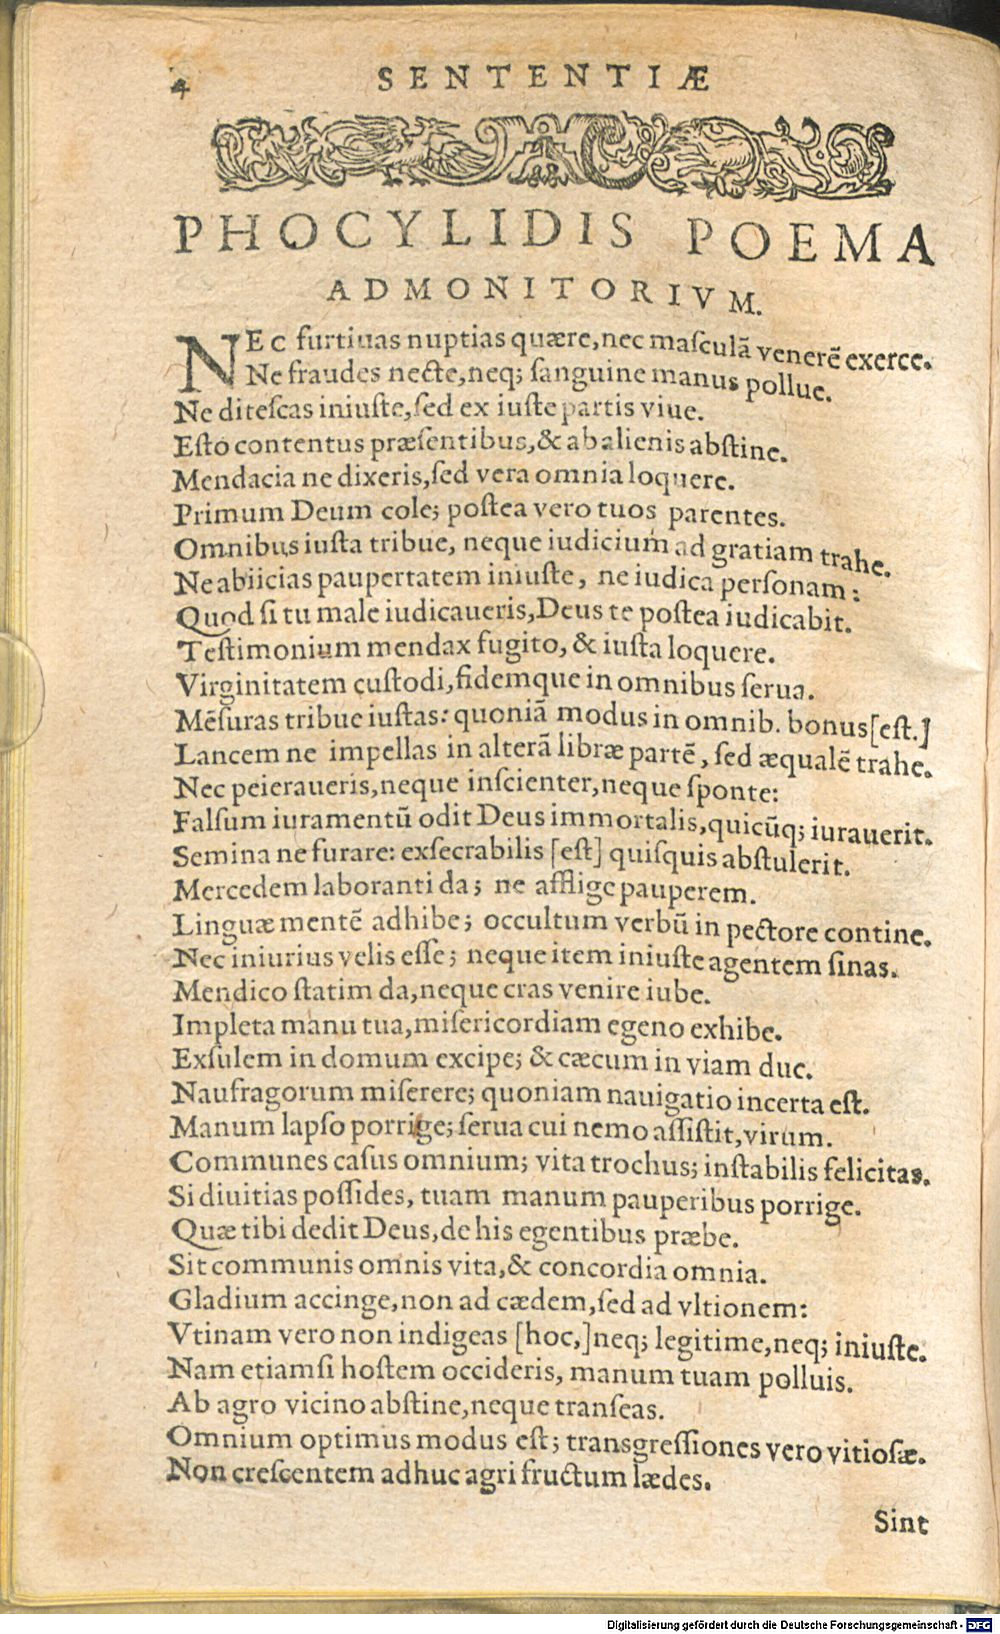 4 SENTENTIÆ
PHOCYLIDIS POEMA
ADMONITORIVM.
NEc furtiuas nuptias quære, nec maſculā venerē exerce.
Ne fraudes necte, neq; ſanguine manus pollue.
Ne diteſcas iniuſte, ſed ex iuſte partis viue.
Eſto contentus præſentibus, & ab alienis abſtine.
Mendacia ne dixeris, ſed vera omnia loquere.
Primum Deum cole; poſtea vero tuos parentes.
Omnibus iuſta tribue, neque iudicium ad gratiam trahe.
Ne abiicias paupertatem iniuſte, ne iudica perſonam:
Quod ſi tu male iudicaueris, Deus te poſtea iudicabit.
Teſtimonium mendax fugito, & iuſta loquere.
Virginitatem cuſtodi, fidemque in omnibus ſerua.
Mēſuras tribue iuſtas: quoniā modus in omnib. bonus [eſt.]
Lancem ne impellas in alterā libræ partē, ſed æqualē trahe.
Nec peieraueris, neque inſcienter, neque ſponte:
Falſum iuramentū odit Deus immortalis, quicūq; iurauerit.
Semina ne furare: exſecrabilis [eſt] quiſquis abſtulerit.
Mercedem laboranti da; ne afflige pauperem.
Linguæ mentē adhibe; occultum verbū in pectore contine.
Nec iniurius velis eſſe; neque item iniuſte agentem ſinas.
Mendico ſtatim da, neque cras venire iube.
Impleta manu tua, miſericordiam egeno exhibe.
Exſulem in domum excipe; & cæcum in viam duc.
Naufragorum miſerere; quoniam nauigatio incerta eſt.
Manum lapſo porrige; ſerua cui nemo aſſiſtit, virum.
Communes caſus omnium; vita trochus; inſtabilis felicitas.
Si diuitias poſſides, tuam manum pauperibus porrige.
Quæ tibi dedit Deus, de his egentibus præbe.
Sit communis omnis vita, & concordia omnia.
Gladium accinge, non ad cædem, ſed ad vltionem:
Vtinam vero non indigeas [hoc,] neq; legitime, neq; iniuſte.
Nam etiamſi hoſtem occideris, manum tuam polluis.
Ab agro vicino abſtine, neque tranſeas.
Omnium optimus modus eſt; transgreſſiones vero vitioſæ.
Non creſcentem adhuc agri fructum lædes.
Sint
Digitalisierung gefördert durch die Deutsche Forschungsgemeinschaft - DFG